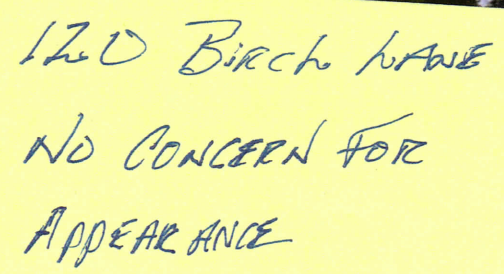 120 Birch Lane
No Concern For
Appearance